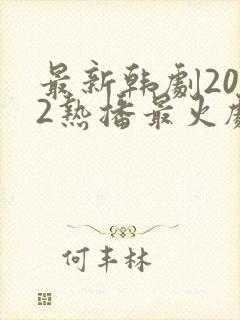 最新韩劇20
2热播最火劇
何丰林